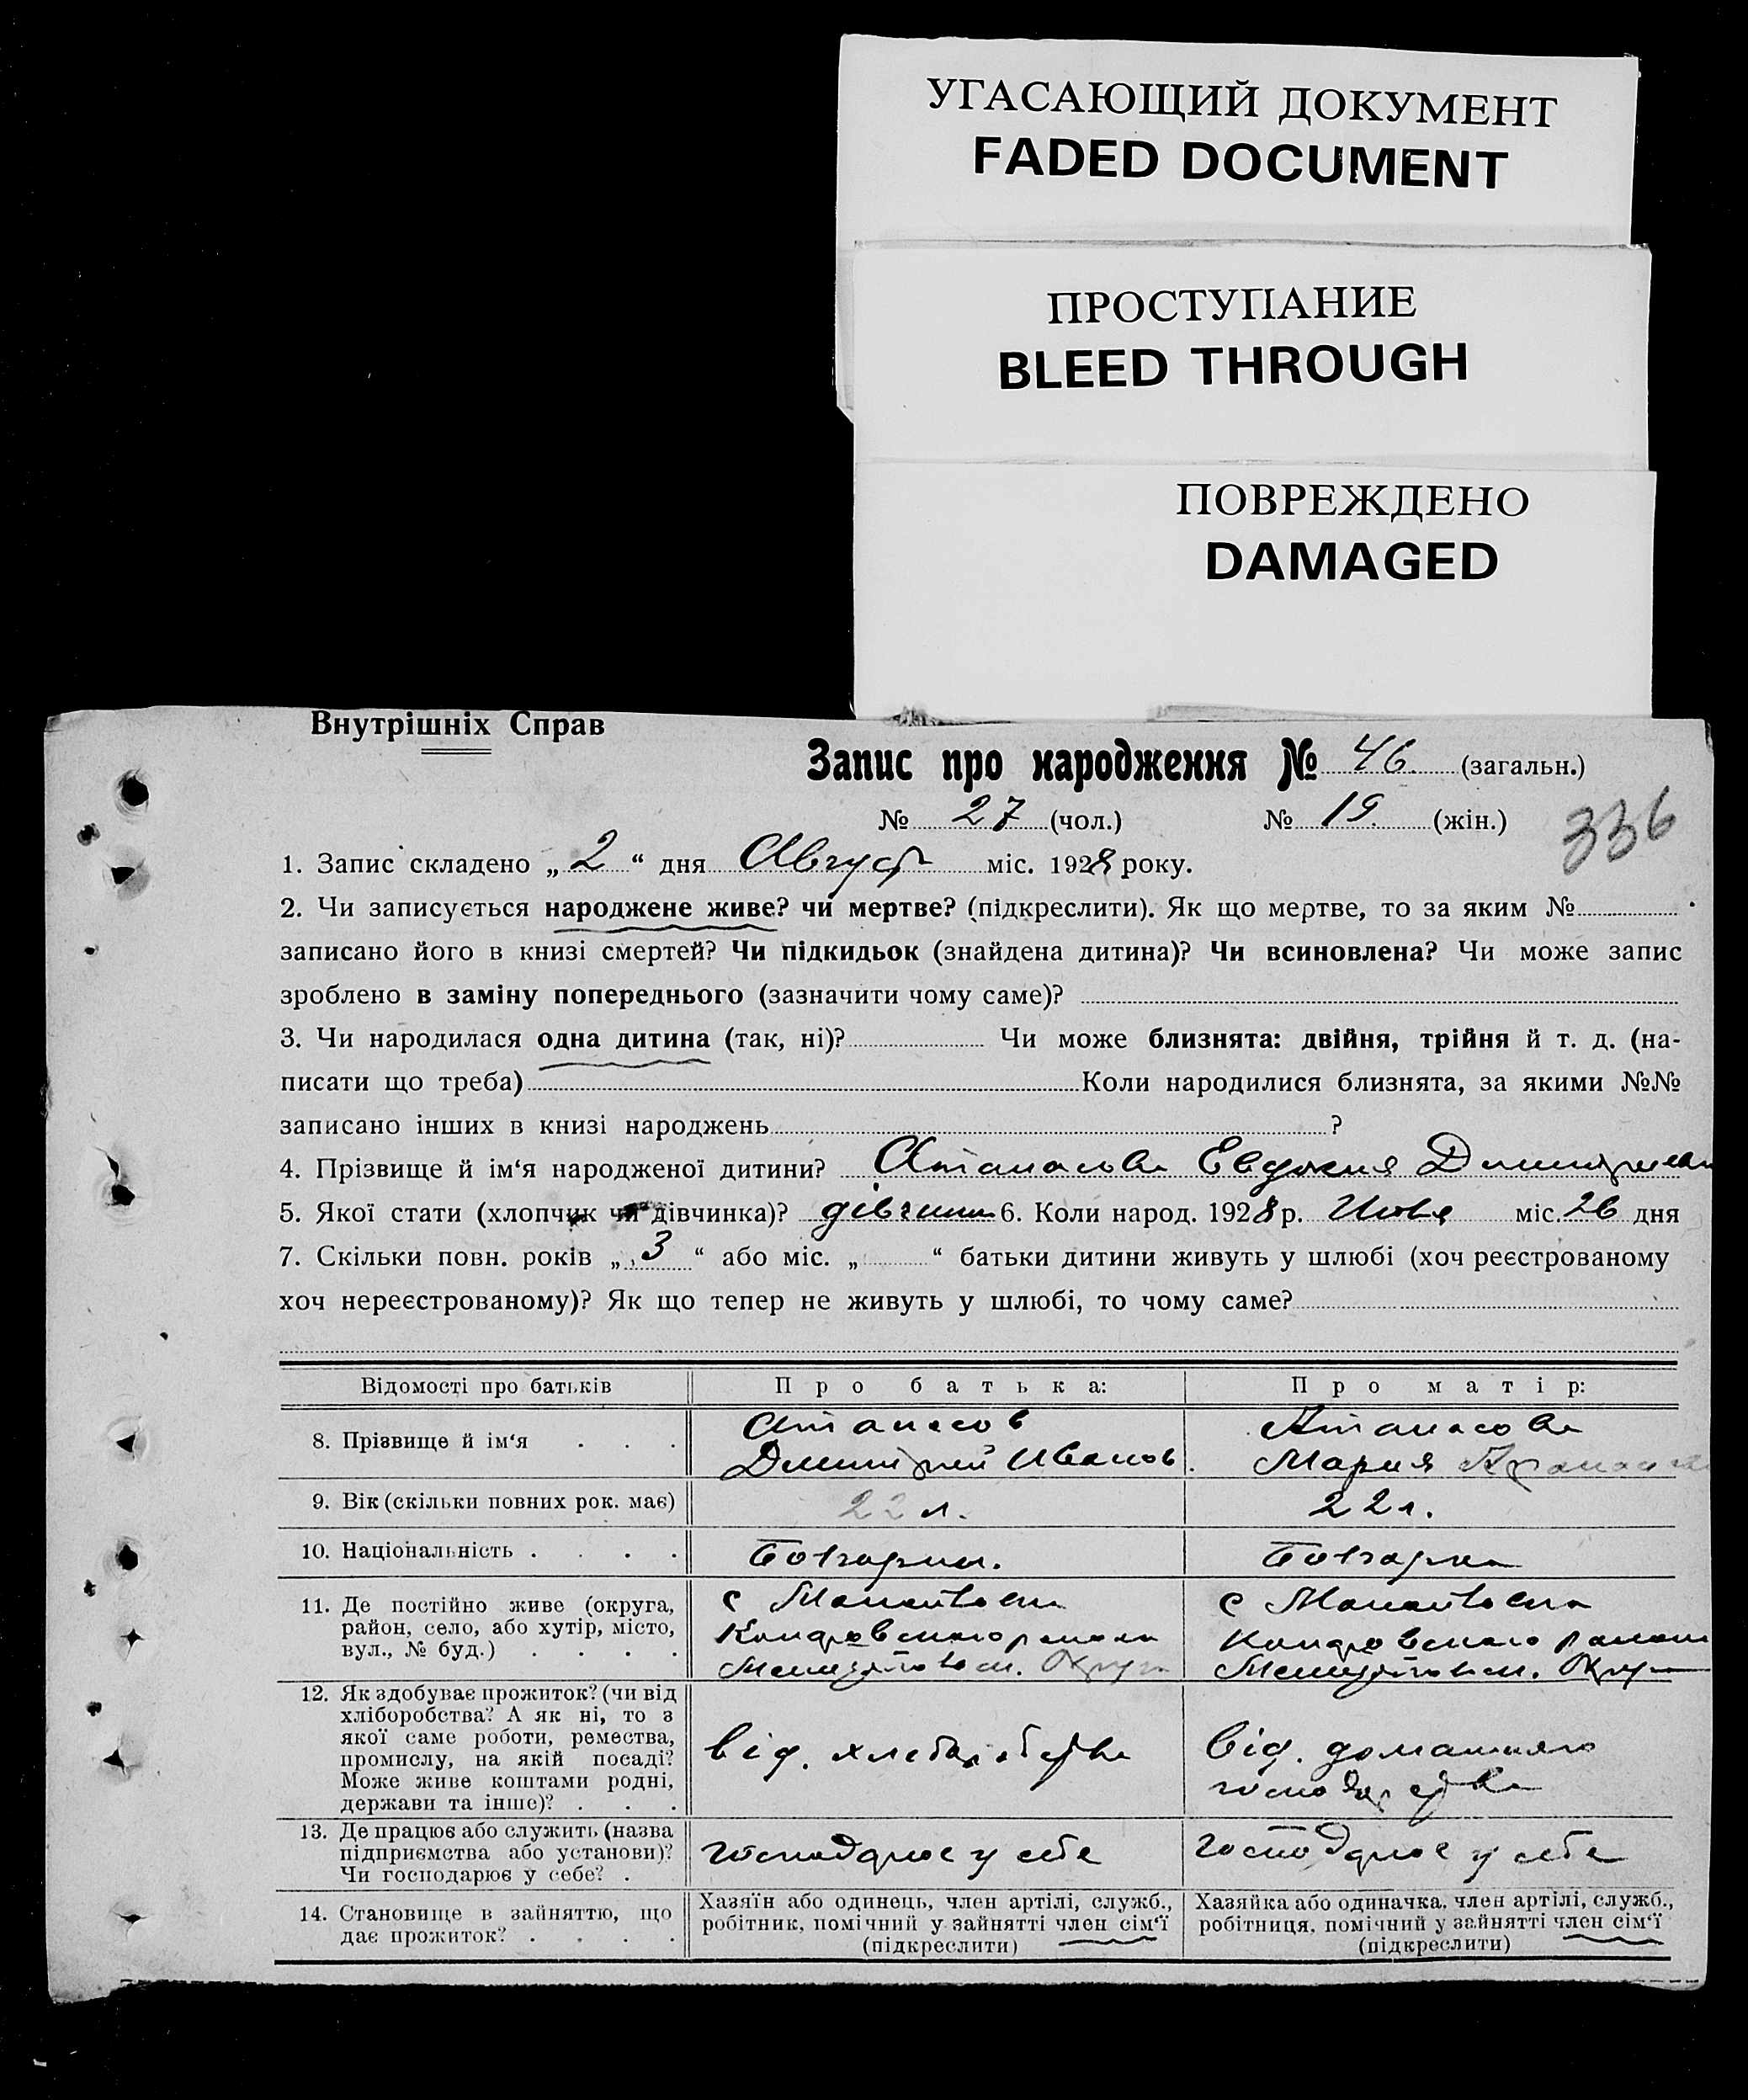 УГАСАЮЩИЙ ДОКУМЕНТ
FADED DOCUMENT
ПРОСТУПАНИЕ
BLEED THROUGH
ПОВРЕЖДЕНО
DAMAGED
Внутрішніх Справ
Запис про народження № 46 (загальн.)
№ 27 (чол.) № 19 (жін.)
336
1. Запис складено „2“ дня Август міс. 1928 року.
2. Чи записується народжене живе? чи мертве? (підкреслити). Як що мертве, то за яким №
записано його в книзі смертей? Чи підкидьок (знайдена дитина)? Чи всиновлена? Чи може запис
зроблено в заміну попереднього (зазначити чому саме)?
3. Чи народилася одна дитина (так, ні)? Чи може близнята: двійня, трійня й т. д. (на-
писати що треба) Коли народилися близнята, за якими №№
записано інших в книзі народжень ?
4. Прізвище й ім‘я народженої дитини? Атанасова Евдокия
5. Якої стати (хлопчик чи дівчинка)? дівчина 6. Коли народ. 1928 р. Июля міс. 26 дня
7. Скільки повн. років „3“ або міс. „ “ батьки дитини живуть у шлюбі (хоч реєстрованому
хоч нереєстрованому)? Як що тепер не живуть у шлюбі, то чому саме?
Відомості про батьків Про батька: Про матір:
8. Прізвище й ім‘я
Атанасов
Димитрий Иванов
Атанасова
Мария
9. Вік (скільки повних рок. має) 22 л. 22 л.
10. Національність Болгарин. Болгарка
11. Де постійно живе (округа,
район, село, або хутір, місто,
вул., № буд.)
с Мануйловка
района
Мелитопольск. Округа
с Мануйловка
района
Мелитопольск. Округа
12. Як здобуває прожиток? (чи від
хліборобства? А як ні, то з
якої саме роботи, ремества,
промислу, на якій посаді?
Може живе коштами родні,
держави та інше)?
від. хлеборобства
від. домашняго
господарства
13. Де працює або служить (назва
підприємства або установи)?
Чи господарює у себе?
господарює у себе
господарює у себе
14. Становище в зайняттю, що
дає прожиток?
Хазяїн або одинець, член артілі, служб.,
робітник, помічний у зайнятті член сім‘ї
(підкреслити)
Хазяйка або одиначка, член артілі, служб.,
робітниця, помічний у зайнятті член сім‘ї
(підкреслити)